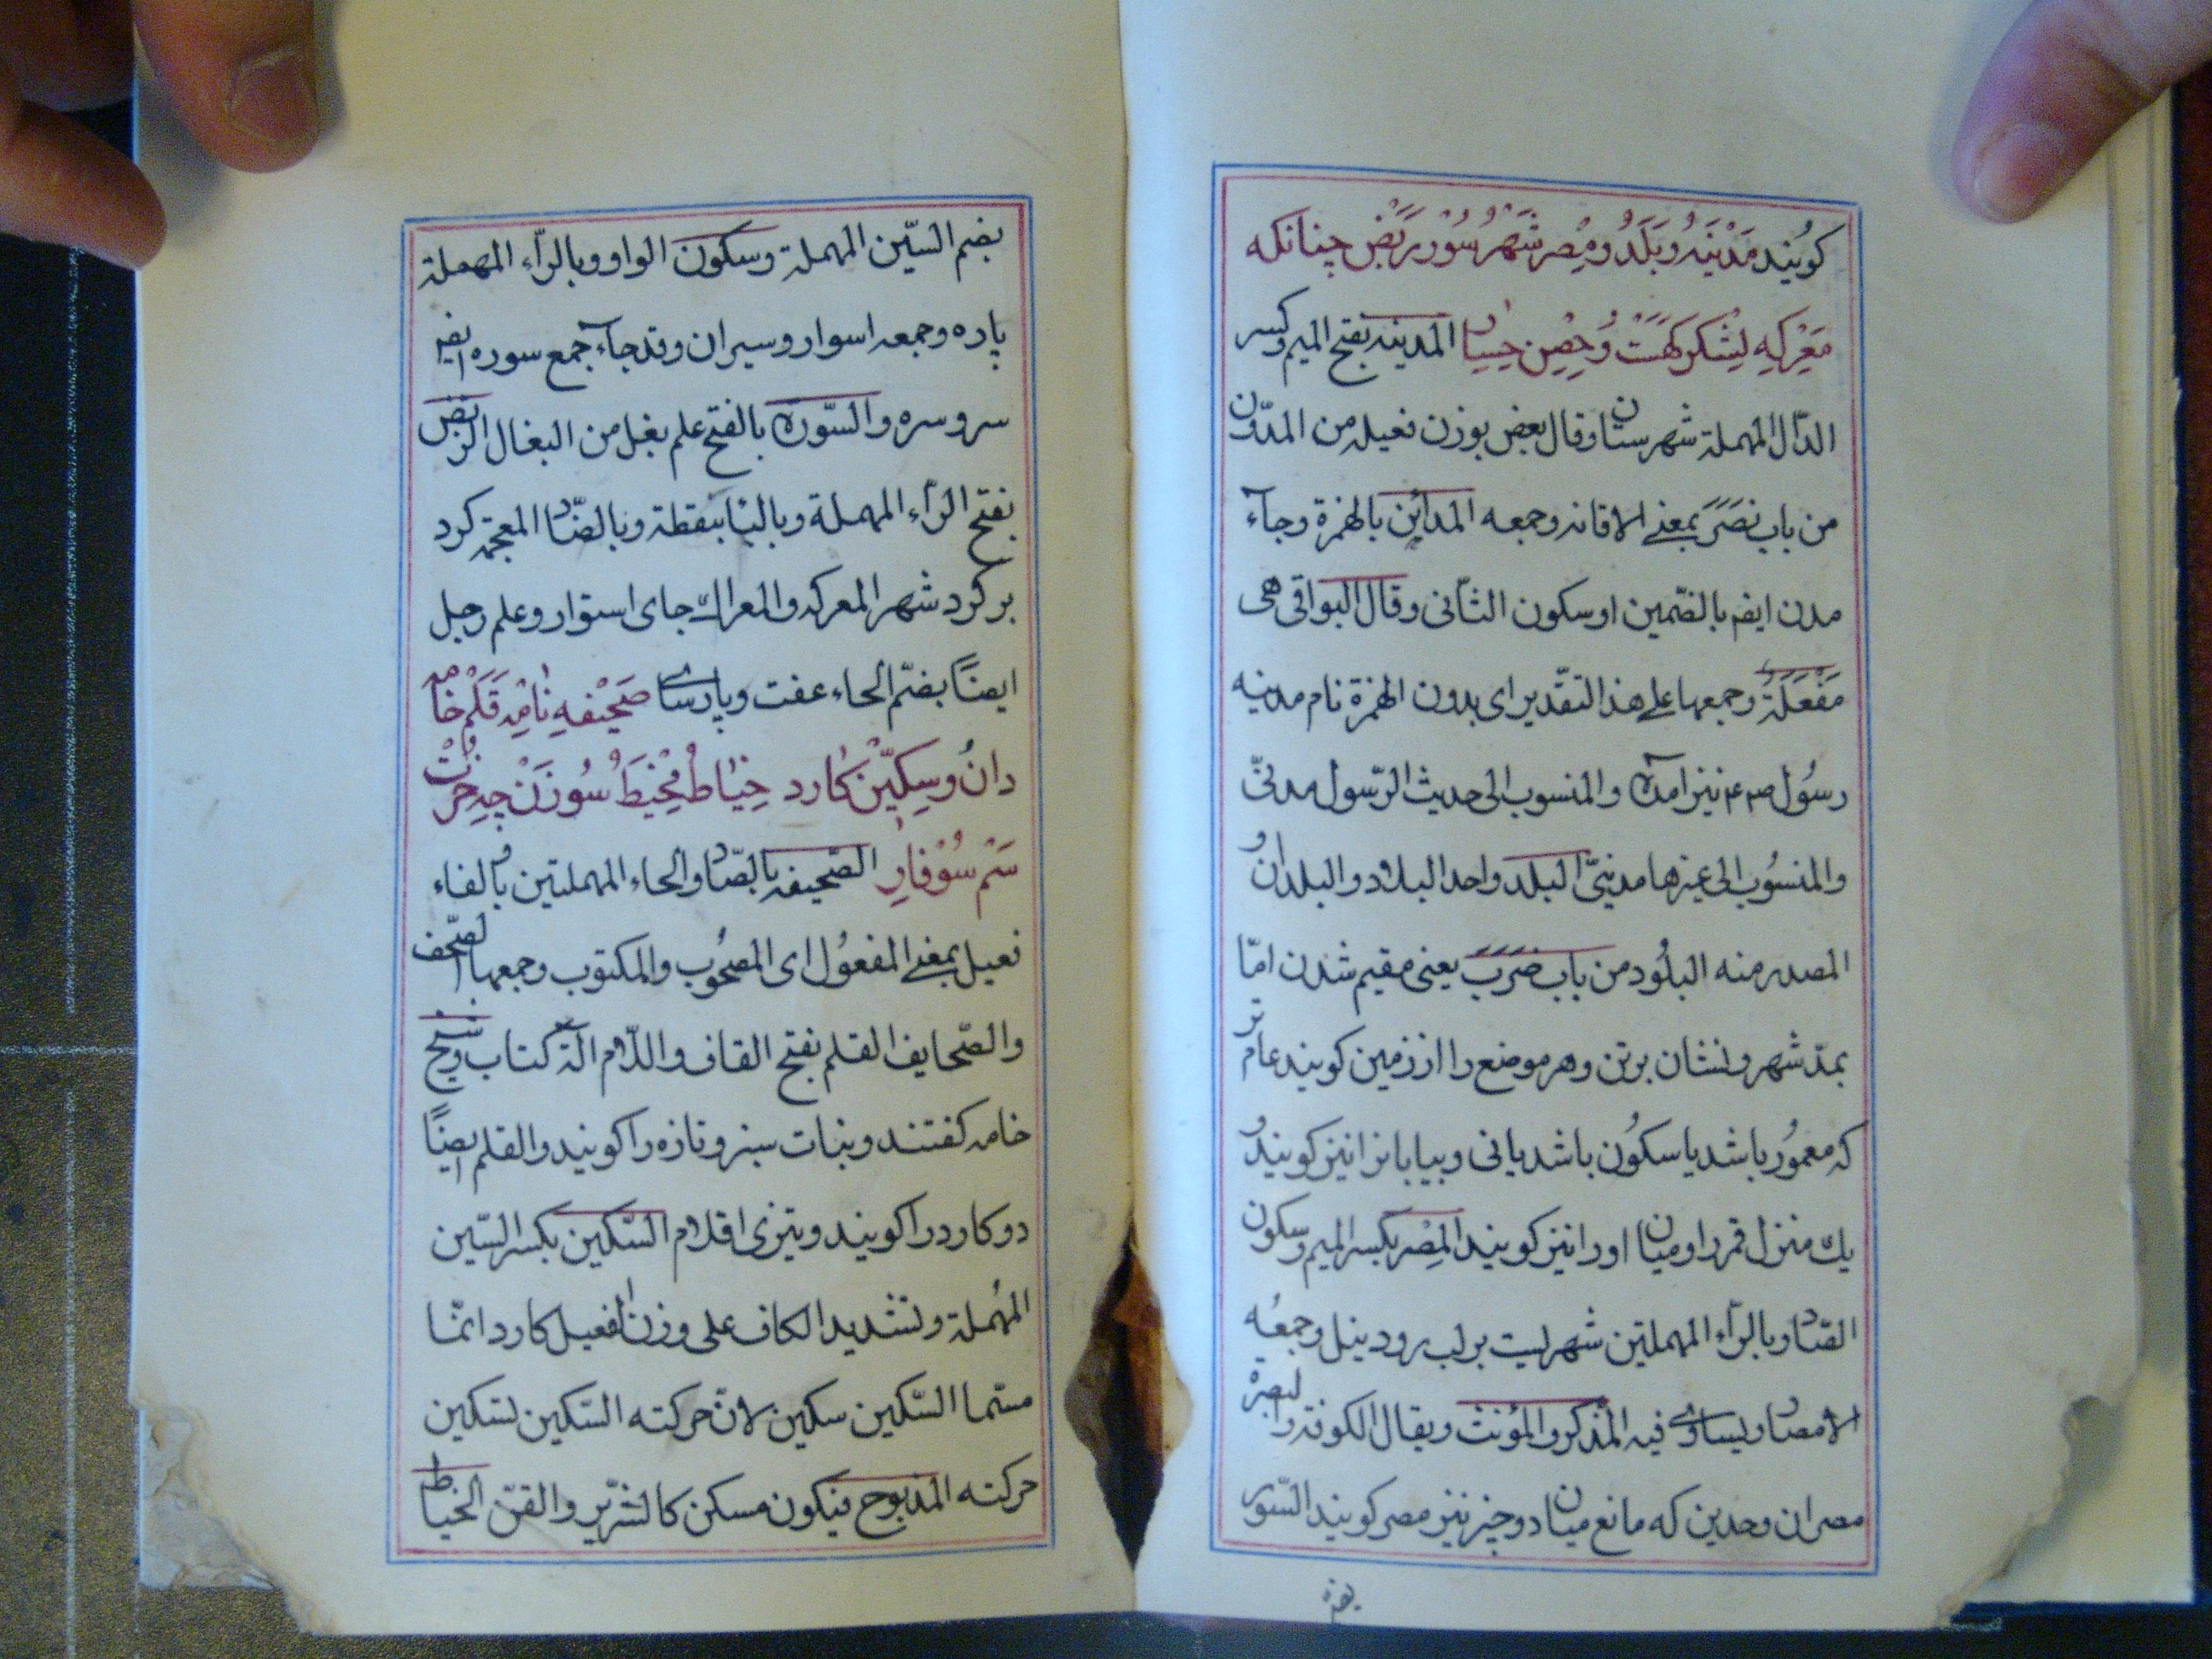 کویند مَدْیَنَهُ وَ بَلَدُ و مِصر شَهْرُ سُوْرْ رَبَضْ چنانکه
مَعْرِکِه لَشْکَرکَهَتْ وَ حِصِن حِسٰان المدینه بفتح المیم وکسر
الدّال المهملة شهرستان وقال بعض بوزن فعیله من المدّون
من باب نصَرَ بمعنے الاقانه وجمعه المدائن بالهمزة وجآء
مدن ایضم بالضّمین او سکون الثّانی وقال البواقی هی
مَفْعَلَةٌ وجمعها علی هذا التقّدیر ای بدون الهمزة نام مدینه
رسُول ص۴ نیز امده والمنسوب الی حدیث الرّسول مدنیّ
والمنسُوب الی غیرها مدینیّ البلد واحد البلاد والبلدانُ و
المصدر منه البلُود من باب ضَرَبَ یعنی مقیم شدن امّا
بمدّ شهر و نشان برتن وهر موضع را از زمین کویند عام تر
که معمُور باشد یا سکُون باشد یانی وبیابانرا نیز کویند و
یك منزل قمر را ومیان اورا نیز کویند المِصْر بکسر المیم وسکون
الصّاد وبالرّاء المهملتین شهریست بر لب رود نیل وجمعُه
الامصار ویساوی فیه المذکر والمؤنث ویقال الکوفة والبصرة
مصران وحدین که مانع میان دوچیز نیز مصر کویند السّور
بضم
بضم السّین المهملة وسکون الواو وبالرّاء المهملة
پاره وجمعه اسوار وسیران وقد جآء جمع سوره ایضم
سر وسره والسّوره بالفتح علم بغل من البغال الرّبض
بفتح الرّاء المهملة وبالبٰا بنقطة وبالضّاد المعجمه کرد
بر کرد شهر المعرکه والمعراك جای استوار وعلم رجل
ایضًا بضّم الحاء عفت وپارسای صَحْیفهِ نٰامِه قَلَمْ خٰامه
دانُ و سِکیّنْ کٰارد خِیٰاطُ مِخْیَطُ سُوزَنْ چِه خَرْتْ
سَمْ سُوْفٰارِ الصّحیفه بالصّاد والحاء المهملتین و بالفاء
فعیل بمعنے المفعُول ای المصحُوب والمکتوب وجمعها الصّحف
والصّحایف القلم بفتح القاف واللّام الة کتاب وشیخ
خامه کفتند ونبات سبز وتازه را کویند والقلم ایضًا
دو کارد را کویند وتیزی اقلام السّکین بکسر السّین
المهُملة وتشدید الکاف علی وزن الفعیل کارد انمّا
مسّما السّکین سکین لانّ حرکته السّکین لتسکین
حرکته المذبوح فیکون مسکن کالشرّیر والقنّ الخیاط